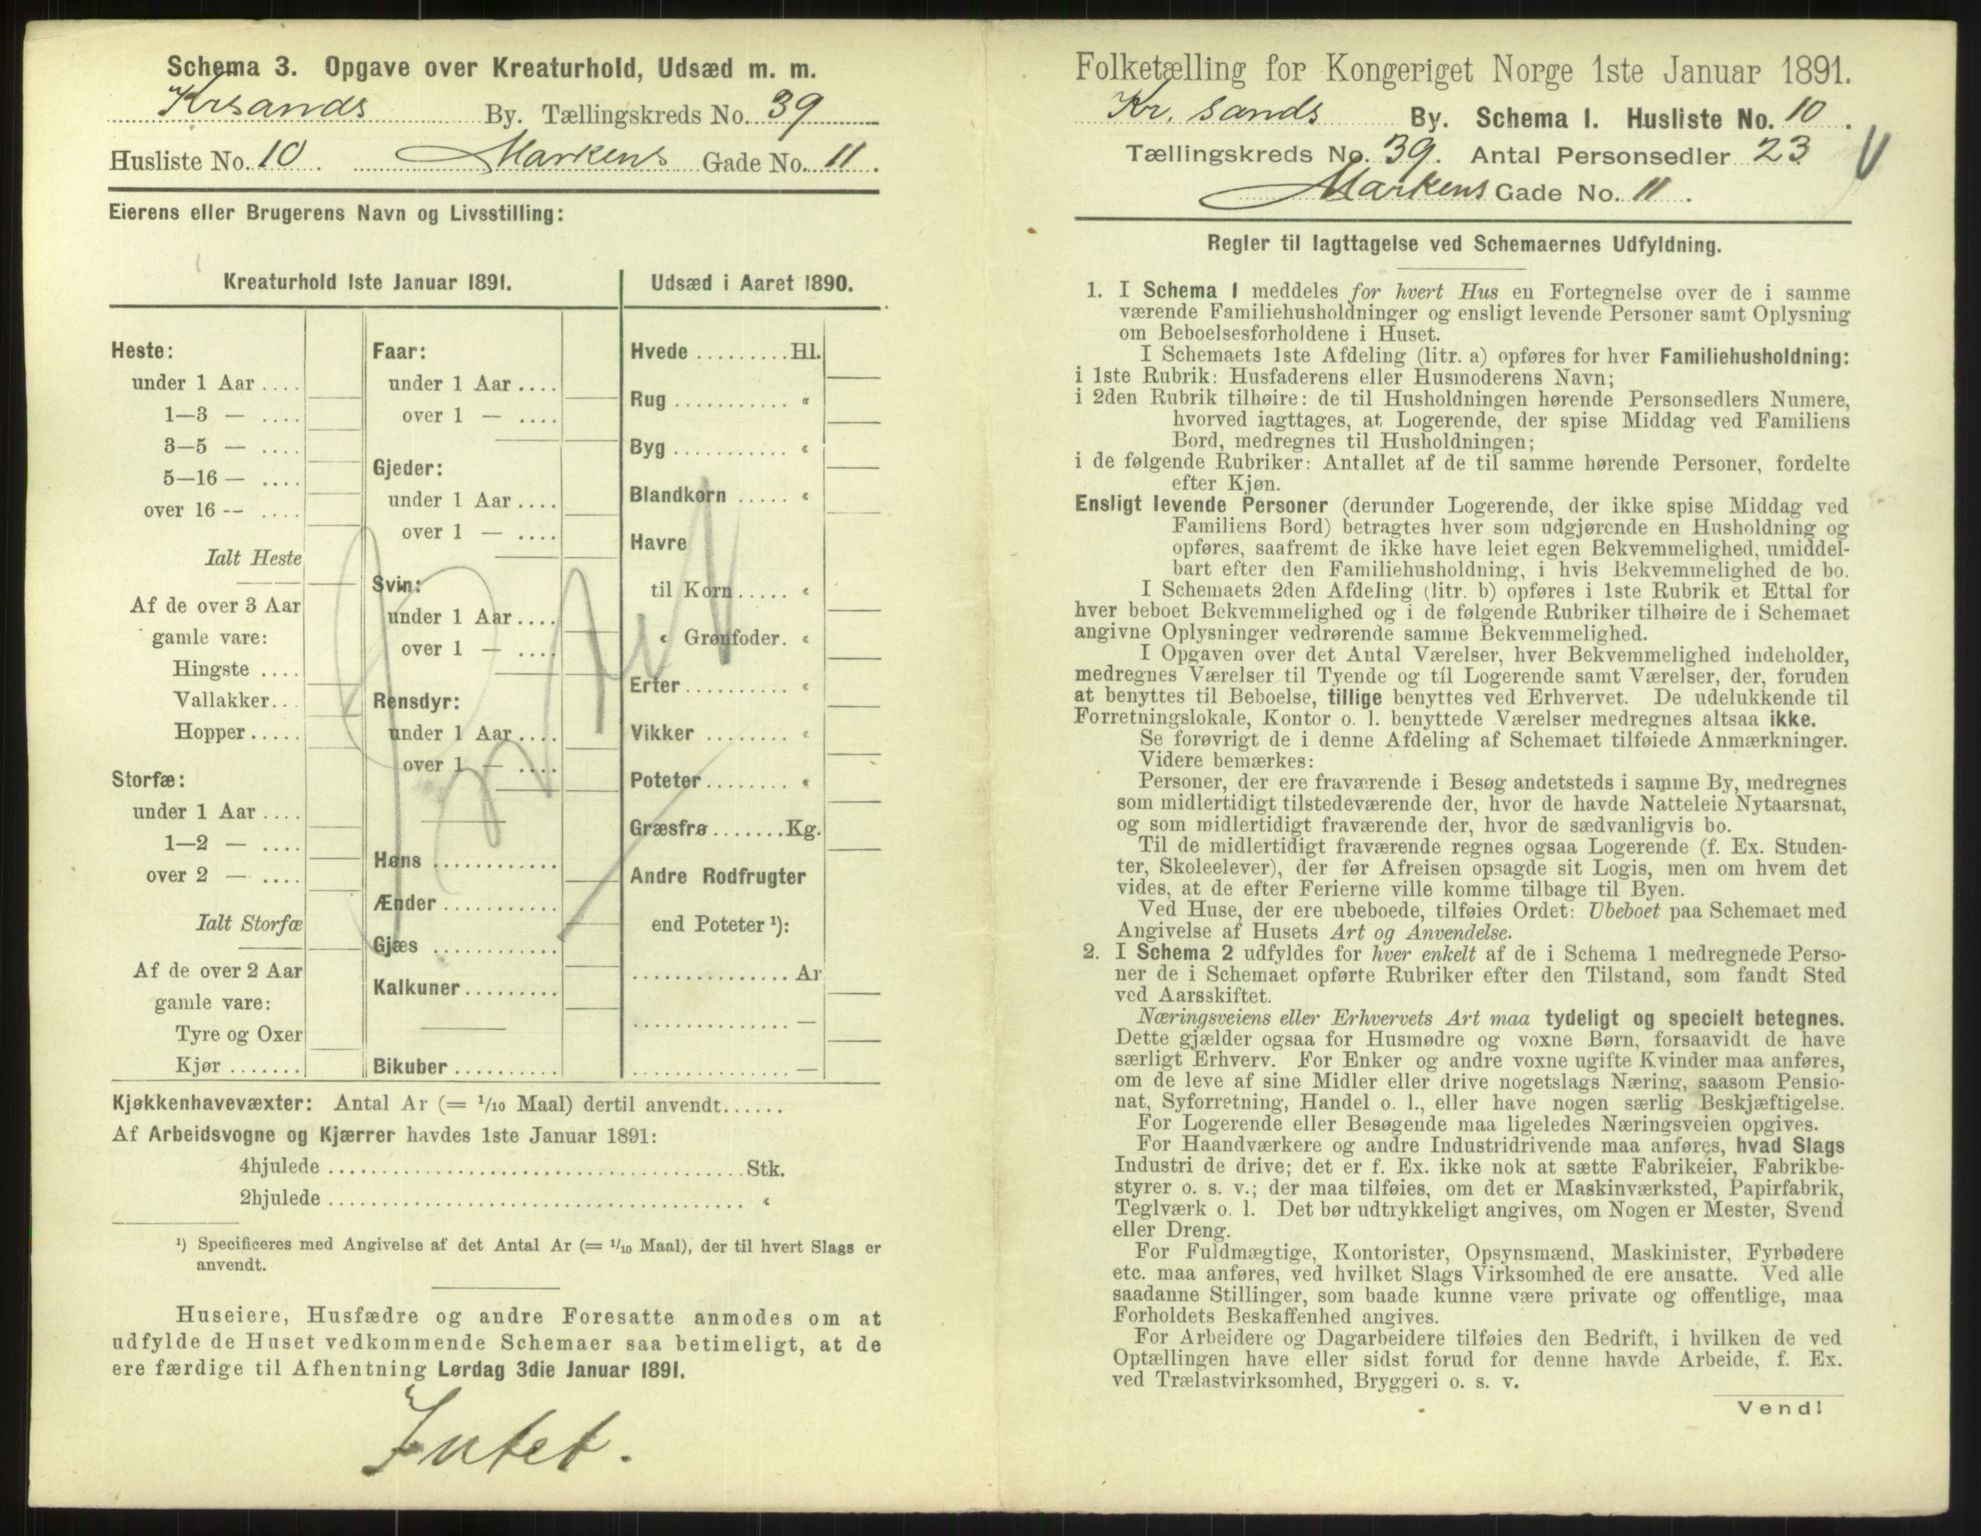 Schema 3. Opgave over Kreaturhold, Udsæd m. m.
Krsands By. Tællingskreds No. 39
Husliste No. 10. Markens Gade No. 11.
Eierens eller Brugerens Navn og Livsstilling:
Kreaturhold 1ste Januar 1891.
Heste:
under 1 Aar ....
1—3 — ....
3—5 — ....
5—16 — ....
over 16 -- ....
Ialt Heste
Af de over 3 Aar
gamle vare:
Hingste ....
Vallakker...
Hopper.....
Storfæ:
under 1 Aar ....
1—2 — ....
over 2 — ....
Ialt Storfæ
Af de over 2 Aar
gamle vare:
Tyre og Oxer
Kjør .......
Faar:
under 1 Aar ....
over 1 — ....
Gjeder:
under 1 Aar ....
over 1 — ....
Svin:
under 1 Aar ....
over 1 — ....
Rensdyr:
under 1 Aar ....
over 1 — ....
Høns ...........
Ænder ...........
Gjæs ...........
Kalkuner.........
Bikuber ..........
Udsæd i Aaret 1890.
Hvede .........Hl.
Rug ........... «
Byg ........... «
Blandkorn ..... «
Havre
til Korn ..... «
« Grønfoder. «
Erter........... «
Vikker ........ «
Poteter........ «
Græsfrø.......Kg.
Andre Rodfrugter
end Poteter ¹):
............... Ar
............... —
............... —
Kjøkkenhavevæxter: Antal Ar (= 1/10 Maal) dertil anvendt......
Af Arbeidsvogne og Kjærrer havdes 1ste Januar 1891:
4hjulede ........................................Stk.
2hjulede ........................................ «
¹) Specificeres med Angivelse af det Antal Ar (= 1/10 Maal), der til hvert Slags er
anvendt.
Huseiere, Husfædre og andre Foresatte anmodes om at
udfylde de Huset vedkommende Schemaer saa betimeligt, at de
ere færdige til Afhentning Lørdag 3die Januar 1891.
Intet.
Folketælling for Kongeriget Norge 1ste Januar 1891.
Kr. sands By. Schema I. Husliste No. 10.
Tællingskreds No. 39. Antal Personsedler 23
Markens Gade No. 11.
Regler til Iagttagelse ved Schemaernes Udfyldning.
1. I Schema 1 meddeles for hvert Hus en Fortegnelse over de i samme
værende Familiehusholdninger og ensligt levende Personer samt Oplysning
om Beboelsesforholdene i Huset.
I Schemaets 1ste Afdeling (litr. a) opføres for hver Familiehusholdning:
i 1ste Rubrik: Husfaderens eller Husmoderens Navn;
i 2den Rubrik tilhøire: de til Husholdningen hørende Personsedlers Numere,
hvorved iagttages, at Logerende, der spise Middag ved Familiens
Bord, medregnes til Husholdningen;
i de følgende Rubriker: Antallet af de til samme hørende Personer, fordelte
efter Kjøn.
Ensligt levende Personer (derunder Logerende, der ikke spise Middag ved
Familiens Bord) betragtes hver som udgjørende en Husholdning og
opføres, saafremt de ikke have leiet egen Bekvemmelighed, umiddel-
bart efter den Familiehusholdning, i hvis Bekvemmelighed de bo.
I Schemaets 2den Afdeling (litr. b) opføres i 1ste Rubrik et Ettal for
hver beboet Bekvemmelighed og i de følgende Rubriker tilhøire de i Schemaet
angivne Oplysninger vedrørende samme Bekvemmelighed.
I Opgaven over det Antal Værelser, hver Bekvemmelighed indeholder,
medregnes Værelser til Tyende og til Logerende samt Værelser, der, foruden
at benyttes til Beboelse, tillige benyttes ved Erhvervet. De udelukkende til
Forretningslokale, Kontor o. l. benyttede Værelser medregnes altsaa ikke.
Se forøvrigt de i denne Afdeling af Schemaet tilføiede Anmærkninger.
Videre bemærkes:
Personer, der ere fraværende i Besøg andetsteds i samme By, medregnes
som midlertidigt tilstedeværende der, hvor de havde Natteleie Nytaarsnat,
og som midlertidigt fraværende der, hvor de sædvanligvis bo.
Til de midlertidigt fraværende regnes ogsaa Logerende (f. Ex. Studen-
ter, Skoleelever), der før Afreisen opsagde sit Logis, men om hvem det
vides, at de efter Ferierne ville komme tilbage til Byen.
Ved Huse, der ere ubeboede, tilføies Ordet: Ubeboet paa Schemaet med
Angivelse af Husets Art og Anvendelse.
2. I Schema 2 udfyldes for hver enkelt af de i Schema 1 medregnede Perso-
ner de i Schemaet opførte Rubriker efter den Tilstand, som fandt Sted
ved Aarsskiftet.
Næringsveiens eller Erhvervets Art maa tydeligt og specielt betegnes.
Dette gjælder ogsaa for Husmødre og voxne Børn, forsaavidt de have
særligt Erhverv. For Enker og andre voxne ugifte Kvinder maa anføres,
om de leve af sine Midler eller drive nogetslags Næring, saasom Pensio-
nat, Syforretning, Handel o. l., eller have nogen særlig Beskjæftigelse.
For Logerende eller Besøgende maa ligeledes Næringsveien opgives.
For Haandværkere og andre Industridrivende maa anføres, hvad Slags
Industri de drive; det er f. Ex. ikke nok at sætte Fabrikeier, Fabrikbe-
styrer o. s. v.; der maa tilføies, om det er Maskinværksted, Papirfabrik,
Teglværk o. l. Det bør udtrykkeligt angives, om Nogen er Mester, Svend
eller Dreng.
For Fuldmægtige, Kontorister, Opsynsmænd, Maskinister, Fyrbødere
etc. maa anføres, ved hvilket Slags Virksomhed de ere ansatte. Ved alle
saadanne Stillinger, som baade kunne være private og offentlige, maa
Forholdets Beskaffenhed angives.
For Arbeidere og Dagarbeidere tilføies den Bedrift, i hvilken de ved
Optællingen have eller sidst forud for denne havde Arbeide, f. Ex.
ved Trælastvirksomhed, Bryggeri o. s. v.
Vend!